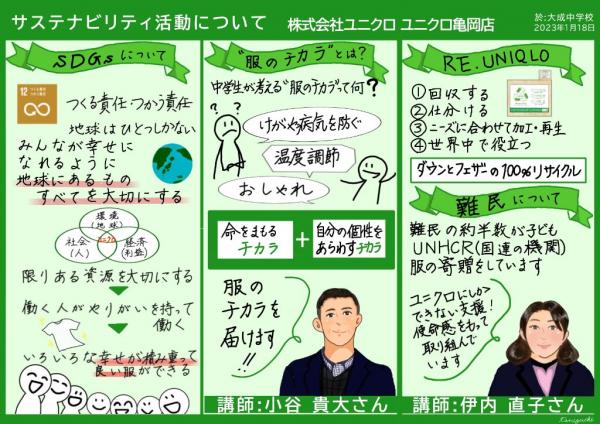 サステナビリティ活動について 株式会社ユニクロ ユニクロ亀岡店
於:大成中学校
2023年1月18日
SDGsについて
12 つくる責任 つかう責任
つくる責任つかう責任
地球はひとつしかない
みんなが幸せに
なれるように
地球にあるもの
すべてを大切にする
環境
(地球)
社会
(人)
経済
(利益)
限りある資源を大切にする
働く人がやりがいを持って
働く
いろいろな幸せが積み重って
良い服ができる
"服のチカラ"とは?
中学生が考える"服のチカラ"って何?
? ?
けがや病気を防ぐ
温度調節
おしゃれ
命をまもる
チカラ
+
自分の個性を
あらわすチカラ
服の
チカラを
届けます!!
講師:小谷 貴大さん
RE.UNIQLO
①回収する
②仕分ける
③ニーズに合わせて加工・再生
④世界中で役立つ
ダウンとフェザーの100%リサイクル
難民について
難民の約半数が子ども
UNHCR(国連の機関)
服の寄贈をしています
ユニクロにしか
できない支援!
使命感をもって
取り組んで
います
講師:伊内 直子さん